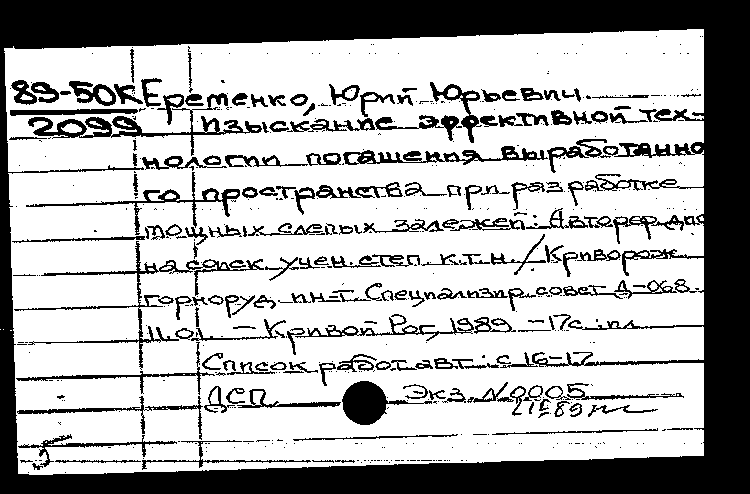 89-50К Еременко, Юрий Юрьевич.
2099 Изыскание эффективной тех-
нологии погашения выработанно
го пространства при разработке
мощных слепых залежей: Автореф. дис
на соиск. учен. степ. к.т.н. / Криворож.
горноруд. ин-т. Специализир. совет Д-068.
11.01. — Кривой Рог, 1989. — 17с.: ил.
Список работ авт.: с 16-17
ДСП Экз. N0005
5